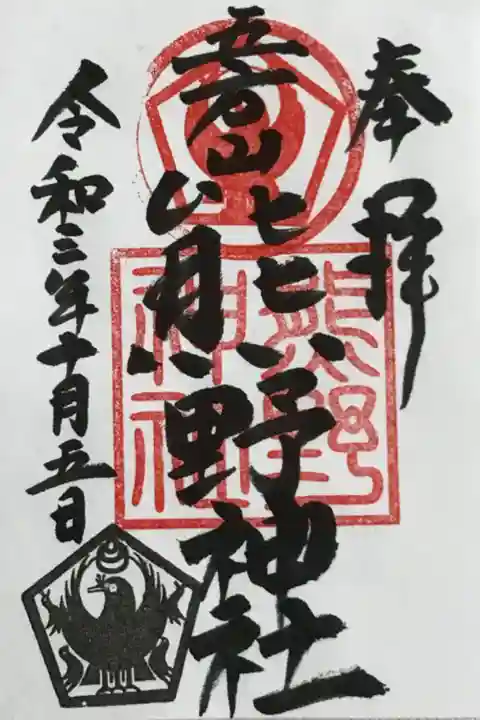 奉拝
五方山
熊野神社
熊野
神社
令和三年十月五日